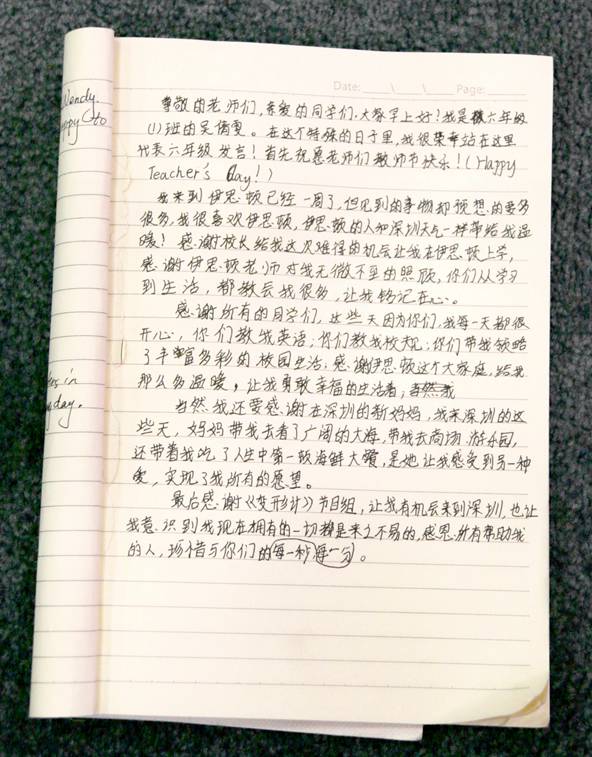 Date: \ \ Page:
Wendy.
Happy to
尊敬的老师们，亲爱的同学们，大家早上好！我是六年级
(1)班的吴倩雯。在这个特殊的日子里，我很荣幸站在这里
代表六年级发言！首先祝愿老师们教师节快乐！(Happy
Teacher's Day!)
我来到伊思顿已经一周了，但见到的事物却预想的要多
很多，我很喜欢伊思顿，伊思顿的人和深圳天气一样带给我温
暖！感谢校长给我这次难得的机会让我在伊思顿上学，
感谢伊思顿老师对我无微不至的照顾，你们从学习
到生活，都教会我很多，让我铭记在心。
感谢所有的同学们，这些天因为你们，我每一天都很
开心，你们教我英语；你们教我校规；你们带我领略
了丰富多彩的校园生活，感谢伊思顿这个大家庭，给我
那么多温暖，让我勇敢幸福的生活着，当然我
当然我还要感谢在深圳的新妈妈，我来深圳的这
些天，妈妈带我去看了广阔的大海，带我去商场 游乐园，
还带着我吃了人生中第一顿海鲜大餐，是她让我感受到另一种
爱，实现了我所有的愿望。
最后感谢《变形计》节目组，让我有机会来到深圳，也让
我意识到我现在拥有的一切都是来之不易的，感恩所有帮助我
的人，珍惜与你们的每一秒每一分。
in
day.